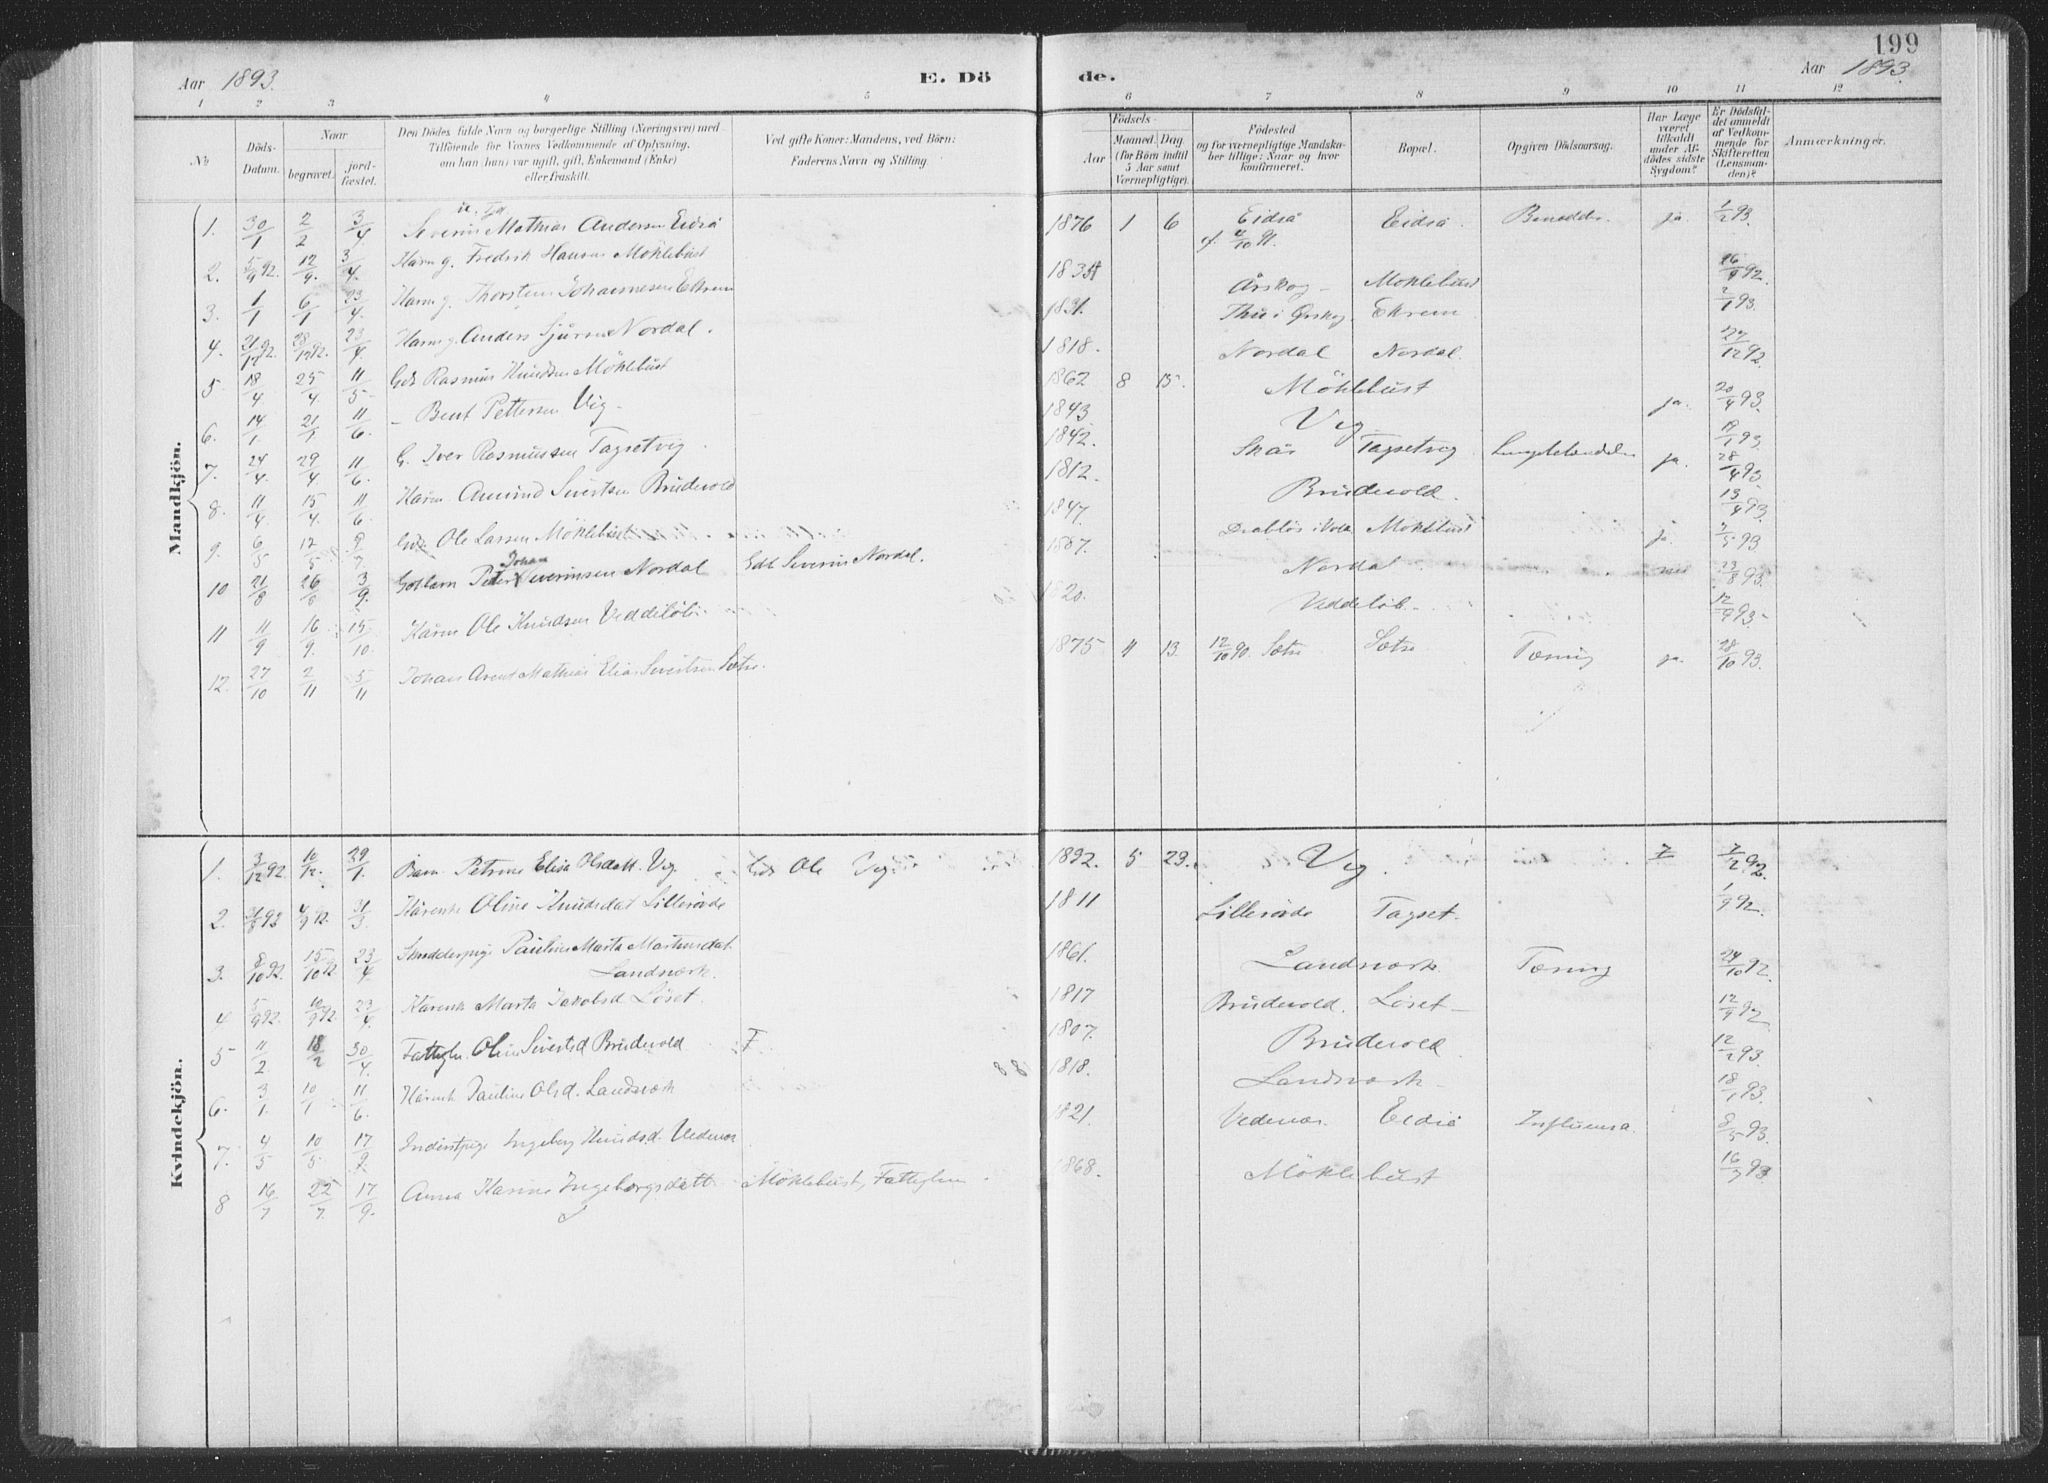 199
Aar 1893.
E. Dö
de.
Aar 1893.
1 2 3 4 5 6 7 8 9 10 11 12
No
Döds-Datum.
Naar
begravet.
jord-fæstet.
Den Dödes fulde Navn og borgerlige Stilling (Næringsvei) med
Tilföiende for Voxnes Vedkommende af Oplysning,
om han (hun) var ugift, gift, Enkemand (Enke)
eller fraskilt.
Ved gifte Koner: Mandens, ved Börn:
Faderens Navn og Stilling
Födsels-
Aar
Maaned. Dag
(for Börn indtil
5 Aar samt
Værnepligtige).
Födested
og for værnepligtige Mandska-
ber tillige: Naar og hvor
konfirmeret.
Bopæl.
Opgiven Dödsaarsag.
Har Læge
været
tilkaldt
under Af-
dödes sidste
Sygdom?
Er Dödsfal-
det anmeldt
af Vedkom-
mende for
Skifteretten
(Lensman-
den)?
Anmærkninger.
Mandkjön.
1. 30/1 2/2 3/4 Severin Mathias Andersen Eidså 1876 1 6 Eidså Eidså ja 1/2 93.
2. 5/9 92. 12/9. 3/4. Kårm g. Fredrik Hansen Möklebust Årskog Möklebust 16/9 92.
3. 1/1 6/1 23/4. Kårm g. Thorsten Johannesen Ekrem 1831. Thu i Ørskog. Ekrem 2/1 93.
4. 21/12 92. 28/12 92. 23/4. Kårm g. Anders Sjursen Nordal. 1818. Nordal Nordal. 27/12 92.
5. 18/4 25/4. 11/5 Gds Rasmus Knudsen Möklebust 1862 8 15. Möklebust ja. 20/4 93.
6. 14/1. 21/1 11/6. Bent Pettersen Vig 1843 Vig 19/1 93.
7. 24/4. 29/4 11/6. G. Iver Rasmussen Tagsetvig. 1842. Skår Tagsetvig Lungebetændelse ja. 28/4 93.
8. 11/4. 15/4. 11/6. Kårm. Amund Sivertsen Brudevold 1812. Brudevold. 13/4 93.
9. 6/5 12/5 Gds. Ole Larsen Möklebust 1847. Drabløs i Volda Möklebust ja. 7/5 93
10 21/8 26/8 3/9. Gdbarn Peter Johan Severinsen Nordal Gdb Severin Nordal. 1887. Nordal 23/8 93.
11 11/9 16/9. 15/10. Kårm Ole Knudsen Veddelöb. 1820. Veddelöb. 12/9 93
12. 27/10 2/11 5/11 Johan Arent Mathias Elias Sivertsen Sætre. 1875 4 13. 12/10 90. Sætre Sætre Tæring ja. 28/10 93.
Kvindekjön.
1. 3/12 92. 10/12. 29/1. Barn Petrine Elisa Olsdatt. Vig. Gds Ole Vig. 1892. 5 29. Vig. 7/12 92.
2. 31/3 Kårenk Oline Knudsdat Lilleröde 1811 Lilleröde Tagset. 1/9 92.
3. 8/10 92. 15/10 92 23/4 Skudderpige Pauline Marta Martinsdat.
Landmark. 1861. Landmark. Tæring 24/10 92.
4 5/9 92. 10/9 92 23/4. Kårenk Marta Jakobsd Löset. 1817 Brudevold. Löset 12/9 92
5 11/2. 18/2 30/4. Fattiglm. Oline Sivertsd Brudevold 1807. Brudevold 12/2 93.
6. 3/1. 10/1 11/6. Kårenk Pauline Olsd. Landmark 1818. Landmark 18/1 93.
7. 4/5 10/5. 17/9. Inderstpige Ingeborg Knudsd. Vedenes 1821. Vedenes. Eidså Influensa. 8/5 93.
8 16/7 22/7. 17/9. Anna Karine Ingeborgsdatt Möklebust, Fattiglem 1868. Möklebust 16/7 93.